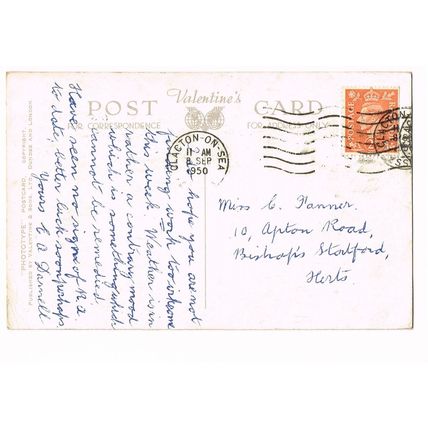 POST Valentine's CARD
FOR CORRESPONDENCE FOR ADDRESS ONLY
CLACTON-ON-SEA
11 AM
8 SEP
1950
hope you are not
finding work too irksome
this week. Weather is in
rather a contrary mood
which is something which
cannot be remedied.
Have seen no signs of No. 2
to date, better luck soon perhaps
Yours
Miss C. Tanner.
10, Apton Road,
Bishop's Stortford,
Herts.
"PHOTOTYPE" POSTCARD. COPYRIGHT.
PUBLISHED BY VALENTINE & SONS, LTD., DUNDEE AND LONDON